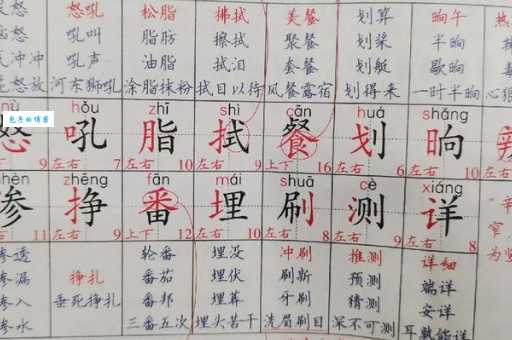 怒吼 松脂 拂拭 美餐 划算 晌午 热
吼叫 脂肪 擦拭 聚餐 划桨 半晌
冲冲 吼声 油脂 拭泪 套餐 划艇 歇晌
怒放 河东狮吼 涂脂抹粉 拭目以待 风餐露宿 划得来 一时半晌 心狠
nù hǒu zhī shì cān huá shǎng
怒 吼 脂 拭 餐 划 晌 辣
9 左右 7 左右 10 左右 9 上下 16 左右 6 左右 10
shèn zhēng fān mái shuā cè xiáng
渗 挣 番 埋 刷 测 详
11 左右 9 上下 12 左右 10 左右 8 左右 9 左右 8
渗透 轮番 埋没 冲刷 推测 详细
渗漏 挣扎 番茄 埋伏 刷新 预测 端详
渗入 垂死挣扎 番邦 埋葬 牙刷 猜测 安详
渗水 三番五次 埋头苦干 洗眉刷目 深不可测 耳熟能详